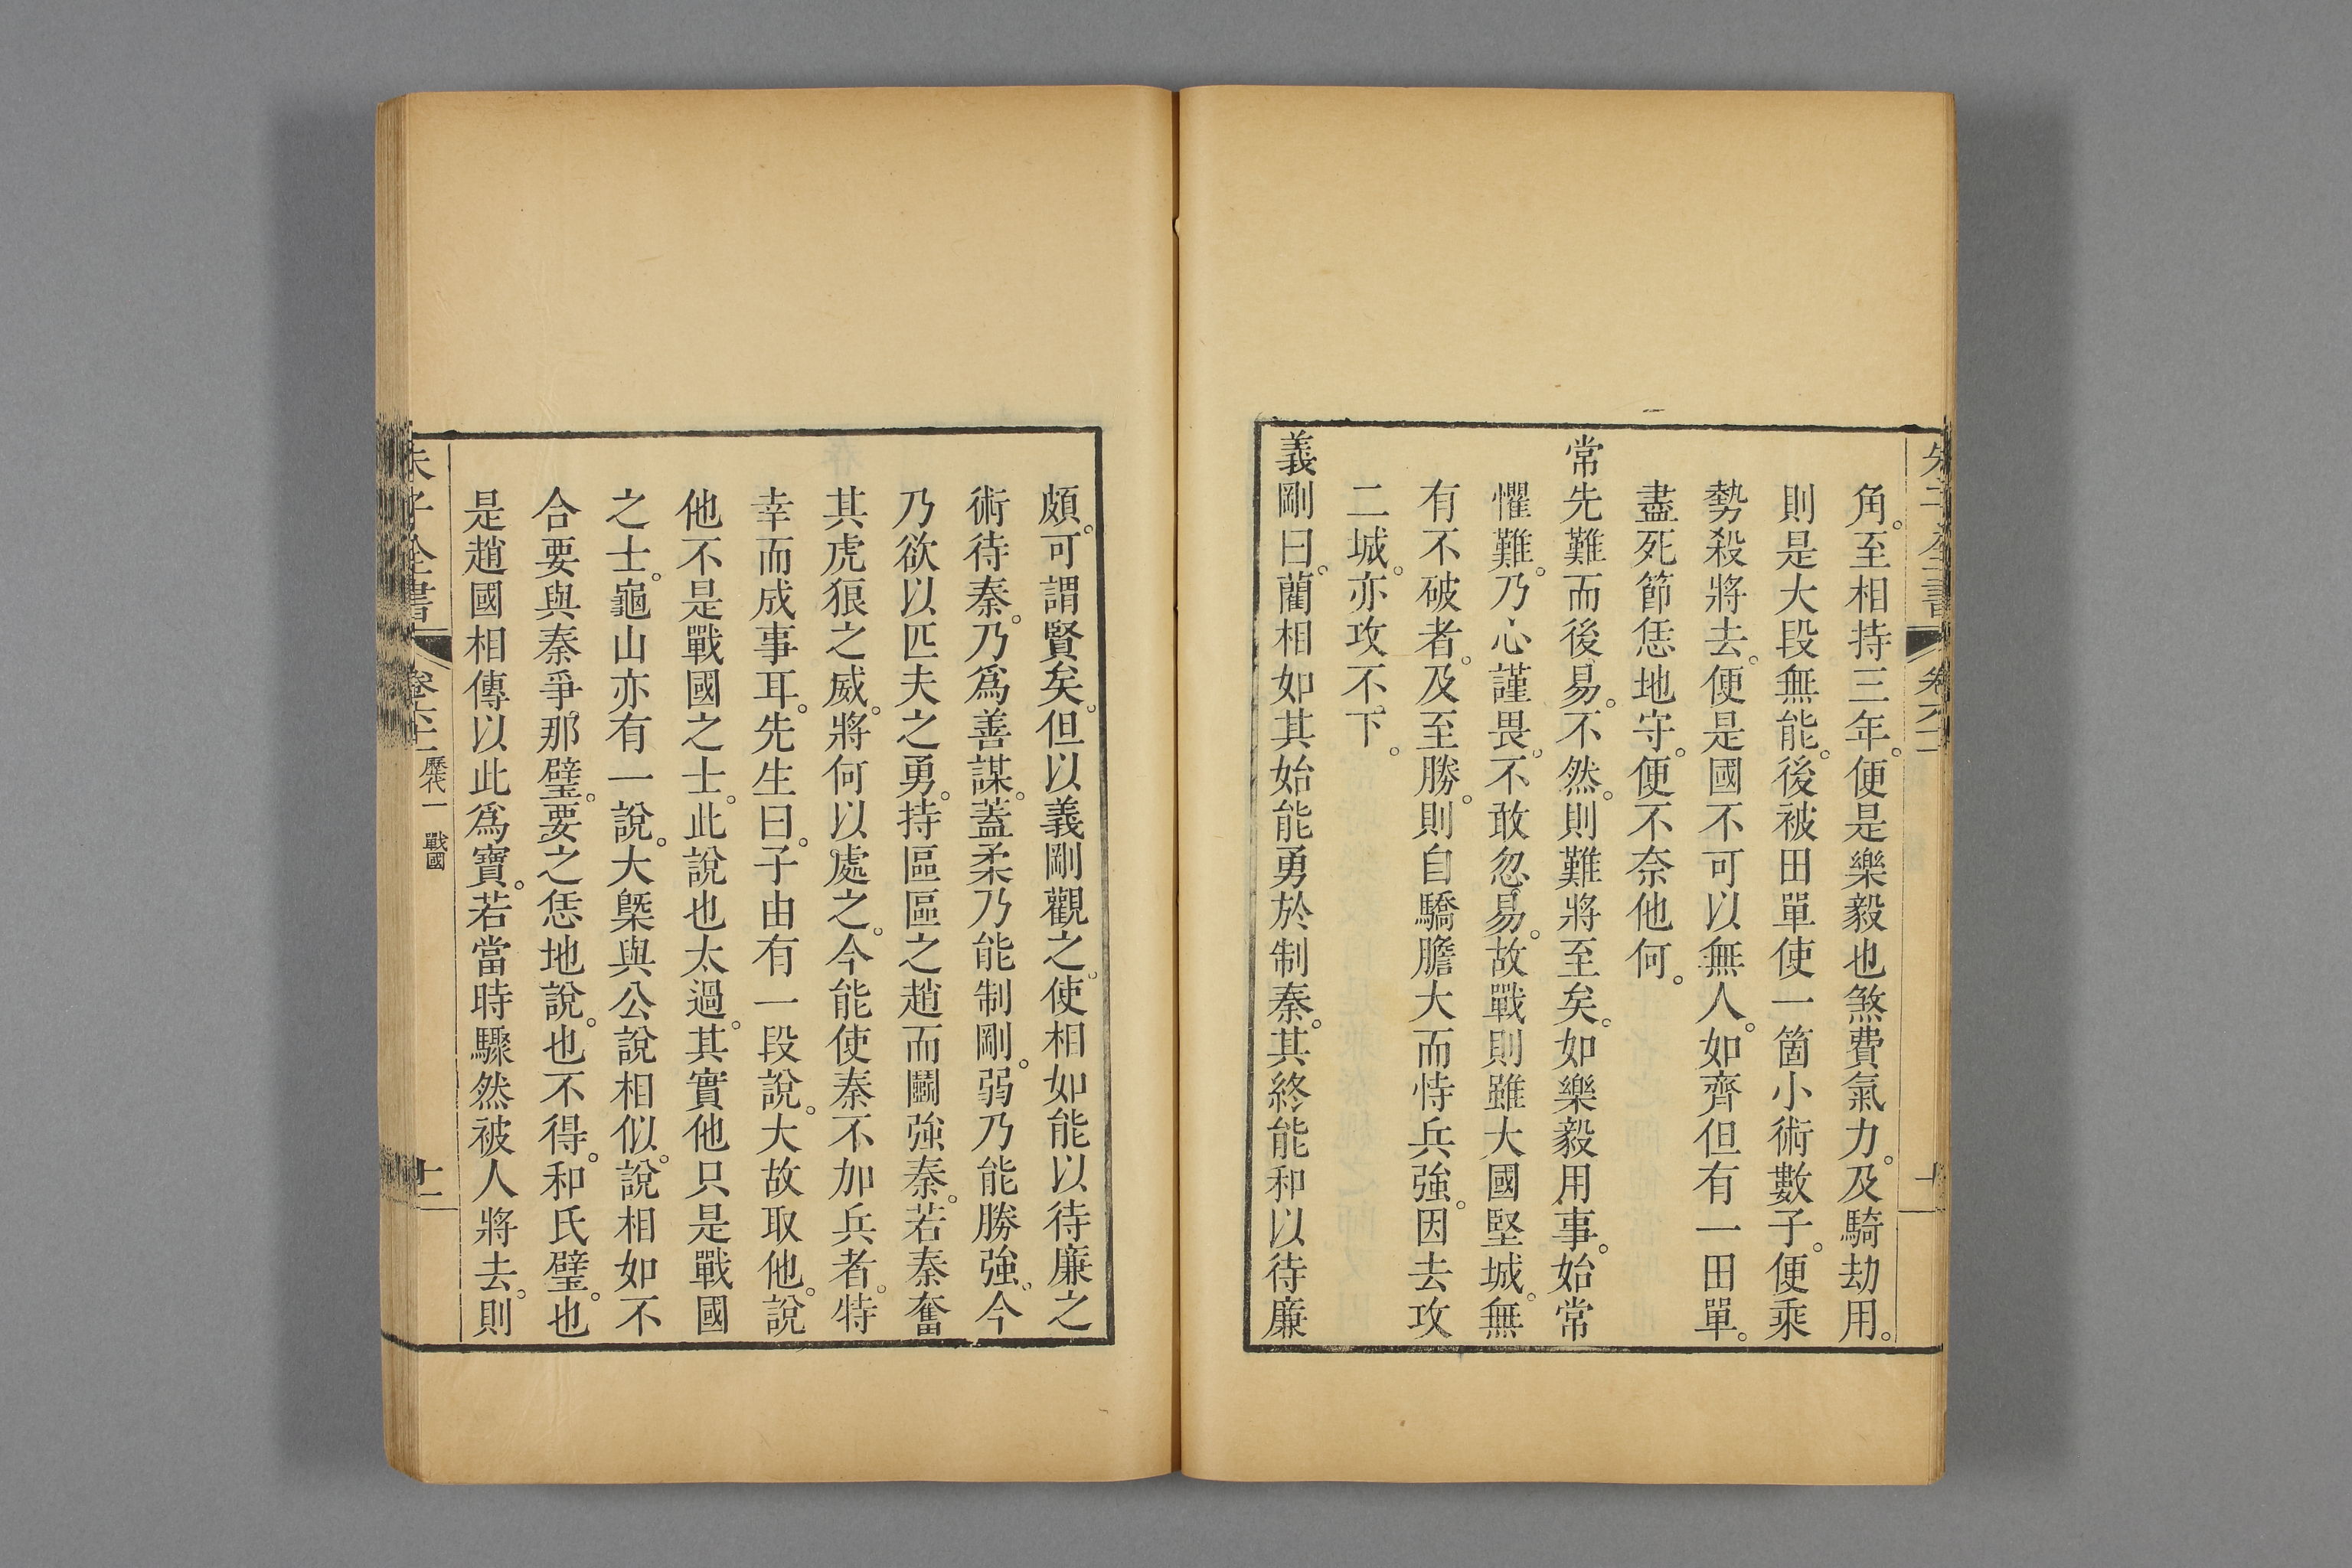 角。至相持三年。便是樂毅也煞費氣力。及騎劫用。
則是大段無能。後被田單使一箇小術數子。便乘
勢殺將去。便是國不可以無人。如齊但有一田單。
盡死節恁地守。便不奈他何。
常先難而後易。不然。則難將至矣。如樂毅用事。始常
懼難。乃心謹畏。不敢忽易。故戰則雖大國堅城。無
有不破者。及至勝。則自驕膽大而恃兵強。因去攻
二城。亦攻不下。
義剛曰。藺相如其始能勇於制秦。其終能和以待廉
頗。可謂賢矣。但以義剛觀之。使相如能以待廉之
術待秦。乃爲善謀。蓋柔乃能制剛。弱乃能勝強。今
乃欲以匹夫之勇。持區區之趙而鬭強秦。若秦奮
其虎狼之威。將何以處之。今能使秦不加兵者。特
幸而成事耳。先生曰。子由有一段說。大故取他。說
他不是戰國之士。此說也太過。其實他只是戰國
之士。龜山亦有一說。大槩與公說相似。說相如不
合要與秦爭那璧。要之恁地說。也不得。和氏璧。也
是趙國相傳以此爲寶。若當時驟然被人將去。則
朱子全書
歷代一 戰國